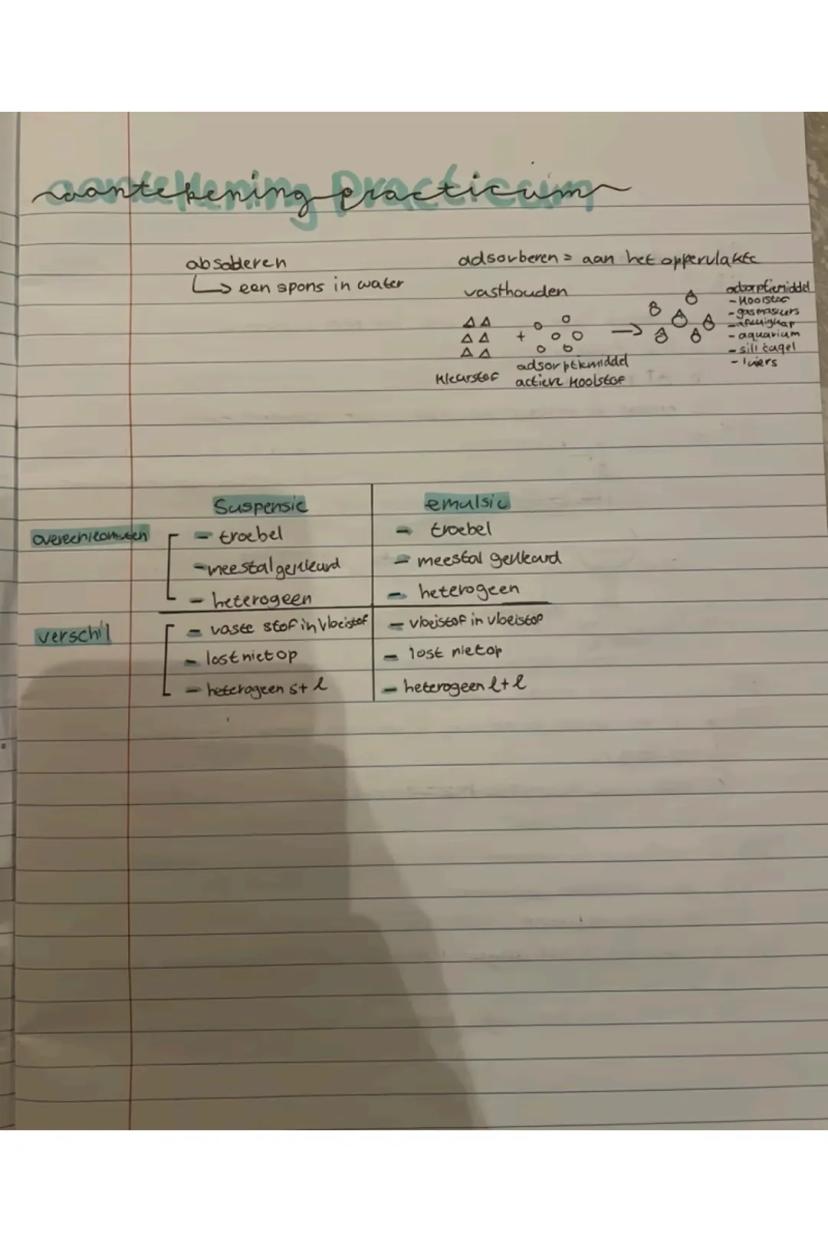 aantekening practicum
absoberen
↳ een spons in water
adsorberen = aan het oppervlakte
vasthouden
+
→
kleurstof
adsorptiemiddel
actieve koolstof
adsorptiemiddel
- koolstof
- gasmaskers
- afzuigkap
- aquarium
- silicagel
- luiers
Suspensie
emulsie
overeenkomsten
- troebel
- troebel
- meestal gekleurd
- meestal gekleurd
- heterogeen
- heterogeen
verschil
- vaste stof in vloeistof
- vloeistof in vloeistof
- lost niet op
- lost niet op
- heterogeen s+l
- heterogeen l+l